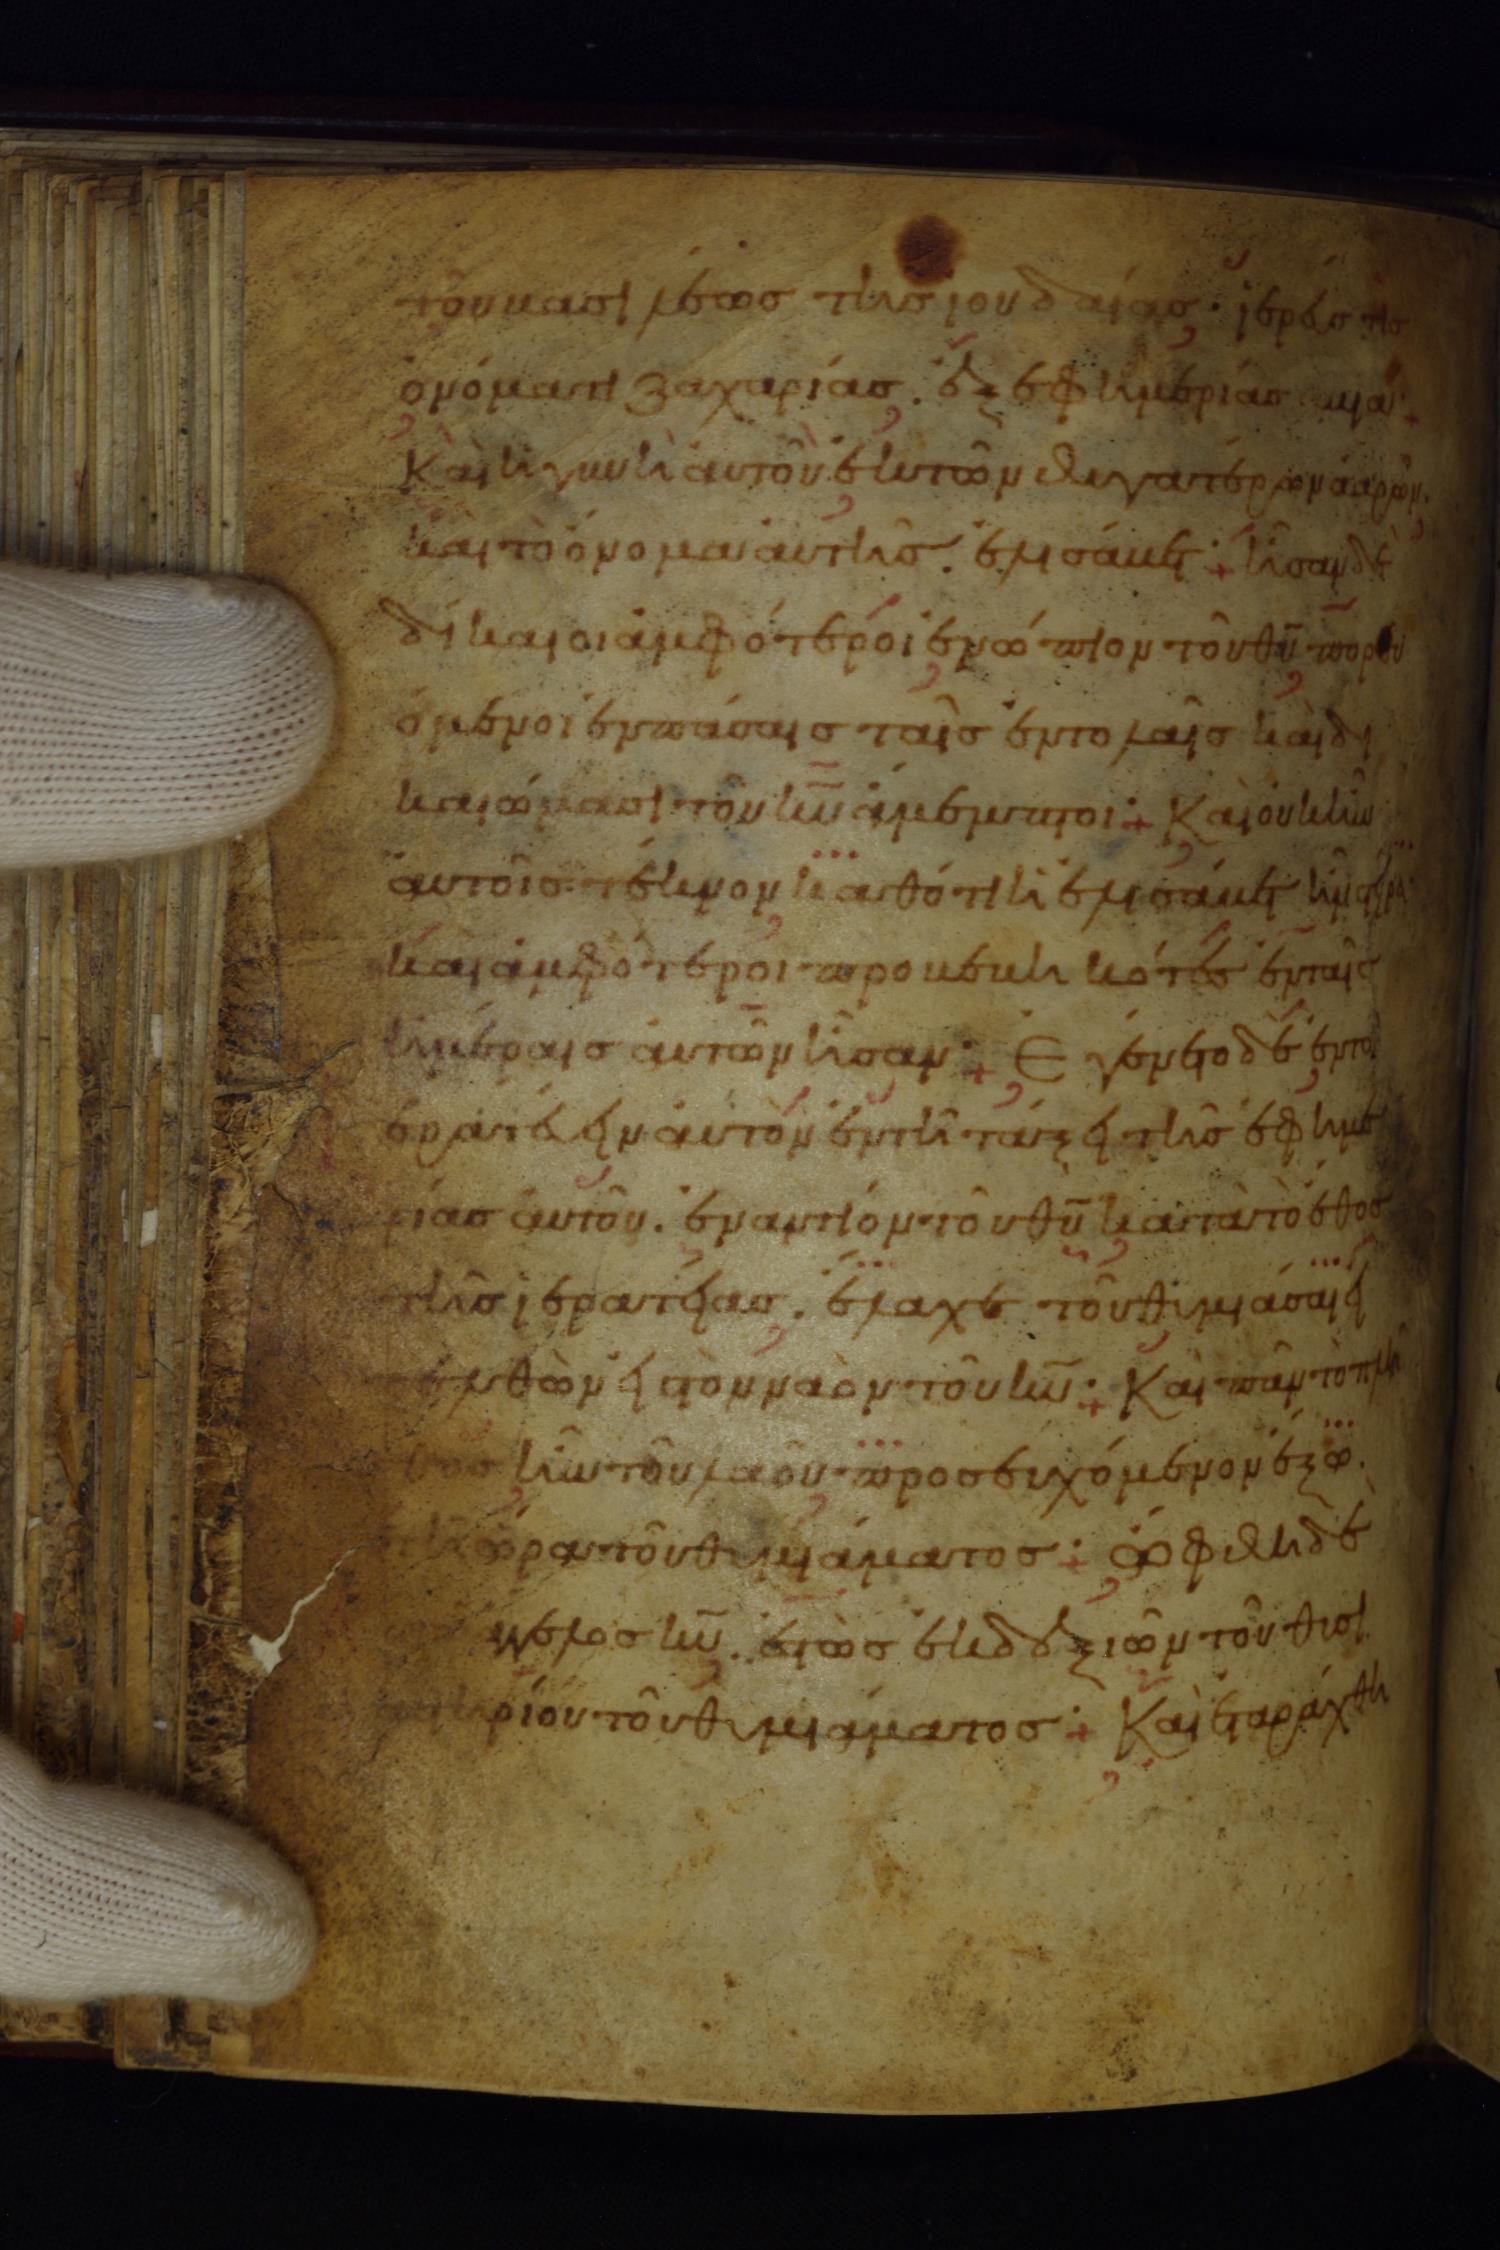 τοῦ βασιλέως τῆς ἰουδαίας· ἱερεύς τις
ὀνόματι ζαχαρίας. ἐξ ἐφημερίας ἀβιά·
Καὶ ἡ γυνὴ αὐτοῦ ἐκ τῶν θυγατέρων ἀαρών.
καὶ τὸ ὄνομα αὐτῆς. ἐλισάβετ: ἦσαν δὲ
δίκαιοι ἀμφότεροι ἐνώπιον τοῦ θῦ πορευ
όμενοι ἐν πάσαις ταῖς ἐντολαῖς καὶ δι
καιώμασι τοῦ κῦ ἄμεμπτοι: Καὶ οὐκ ἦν
αὐτοῖς τέκνον καθότι ἡ ἐλισάβετ ἦν στεῖρα·
καὶ ἀμφότεροι προβεβηκότες ἐν ταῖς
ἡμέραις αὐτῶν ἦσαν: Ἐγένετο δὲ ἐν τῶ
ἱερατεύειν αὐτὸν ἐν τῆ τάξει τῆς ἐφημε
ρίας αὐτοῦ. ἐναντίον τοῦ θῦ κατὰ τὸ ἔθος
τῆς ἱερατείας. ἔλαχε τοῦ θυμιάσαι εἰ
σελθὼν εἰς τὸν ναὸν τοῦ κῦ: Καὶ πᾶν τὸ πλῆ
θος ἦν τοῦ λαοῦ προσευχόμενον ἔξω.
τῆ ὥρα τοῦ θυμιάματος: ὤφθη δὲ
γγελος κῦ. ἑστὼς ἐκ δεξιῶν τοῦ θυσι
αστηρίου τοῦ θυμιάματος: Καὶ ἐταράχθη